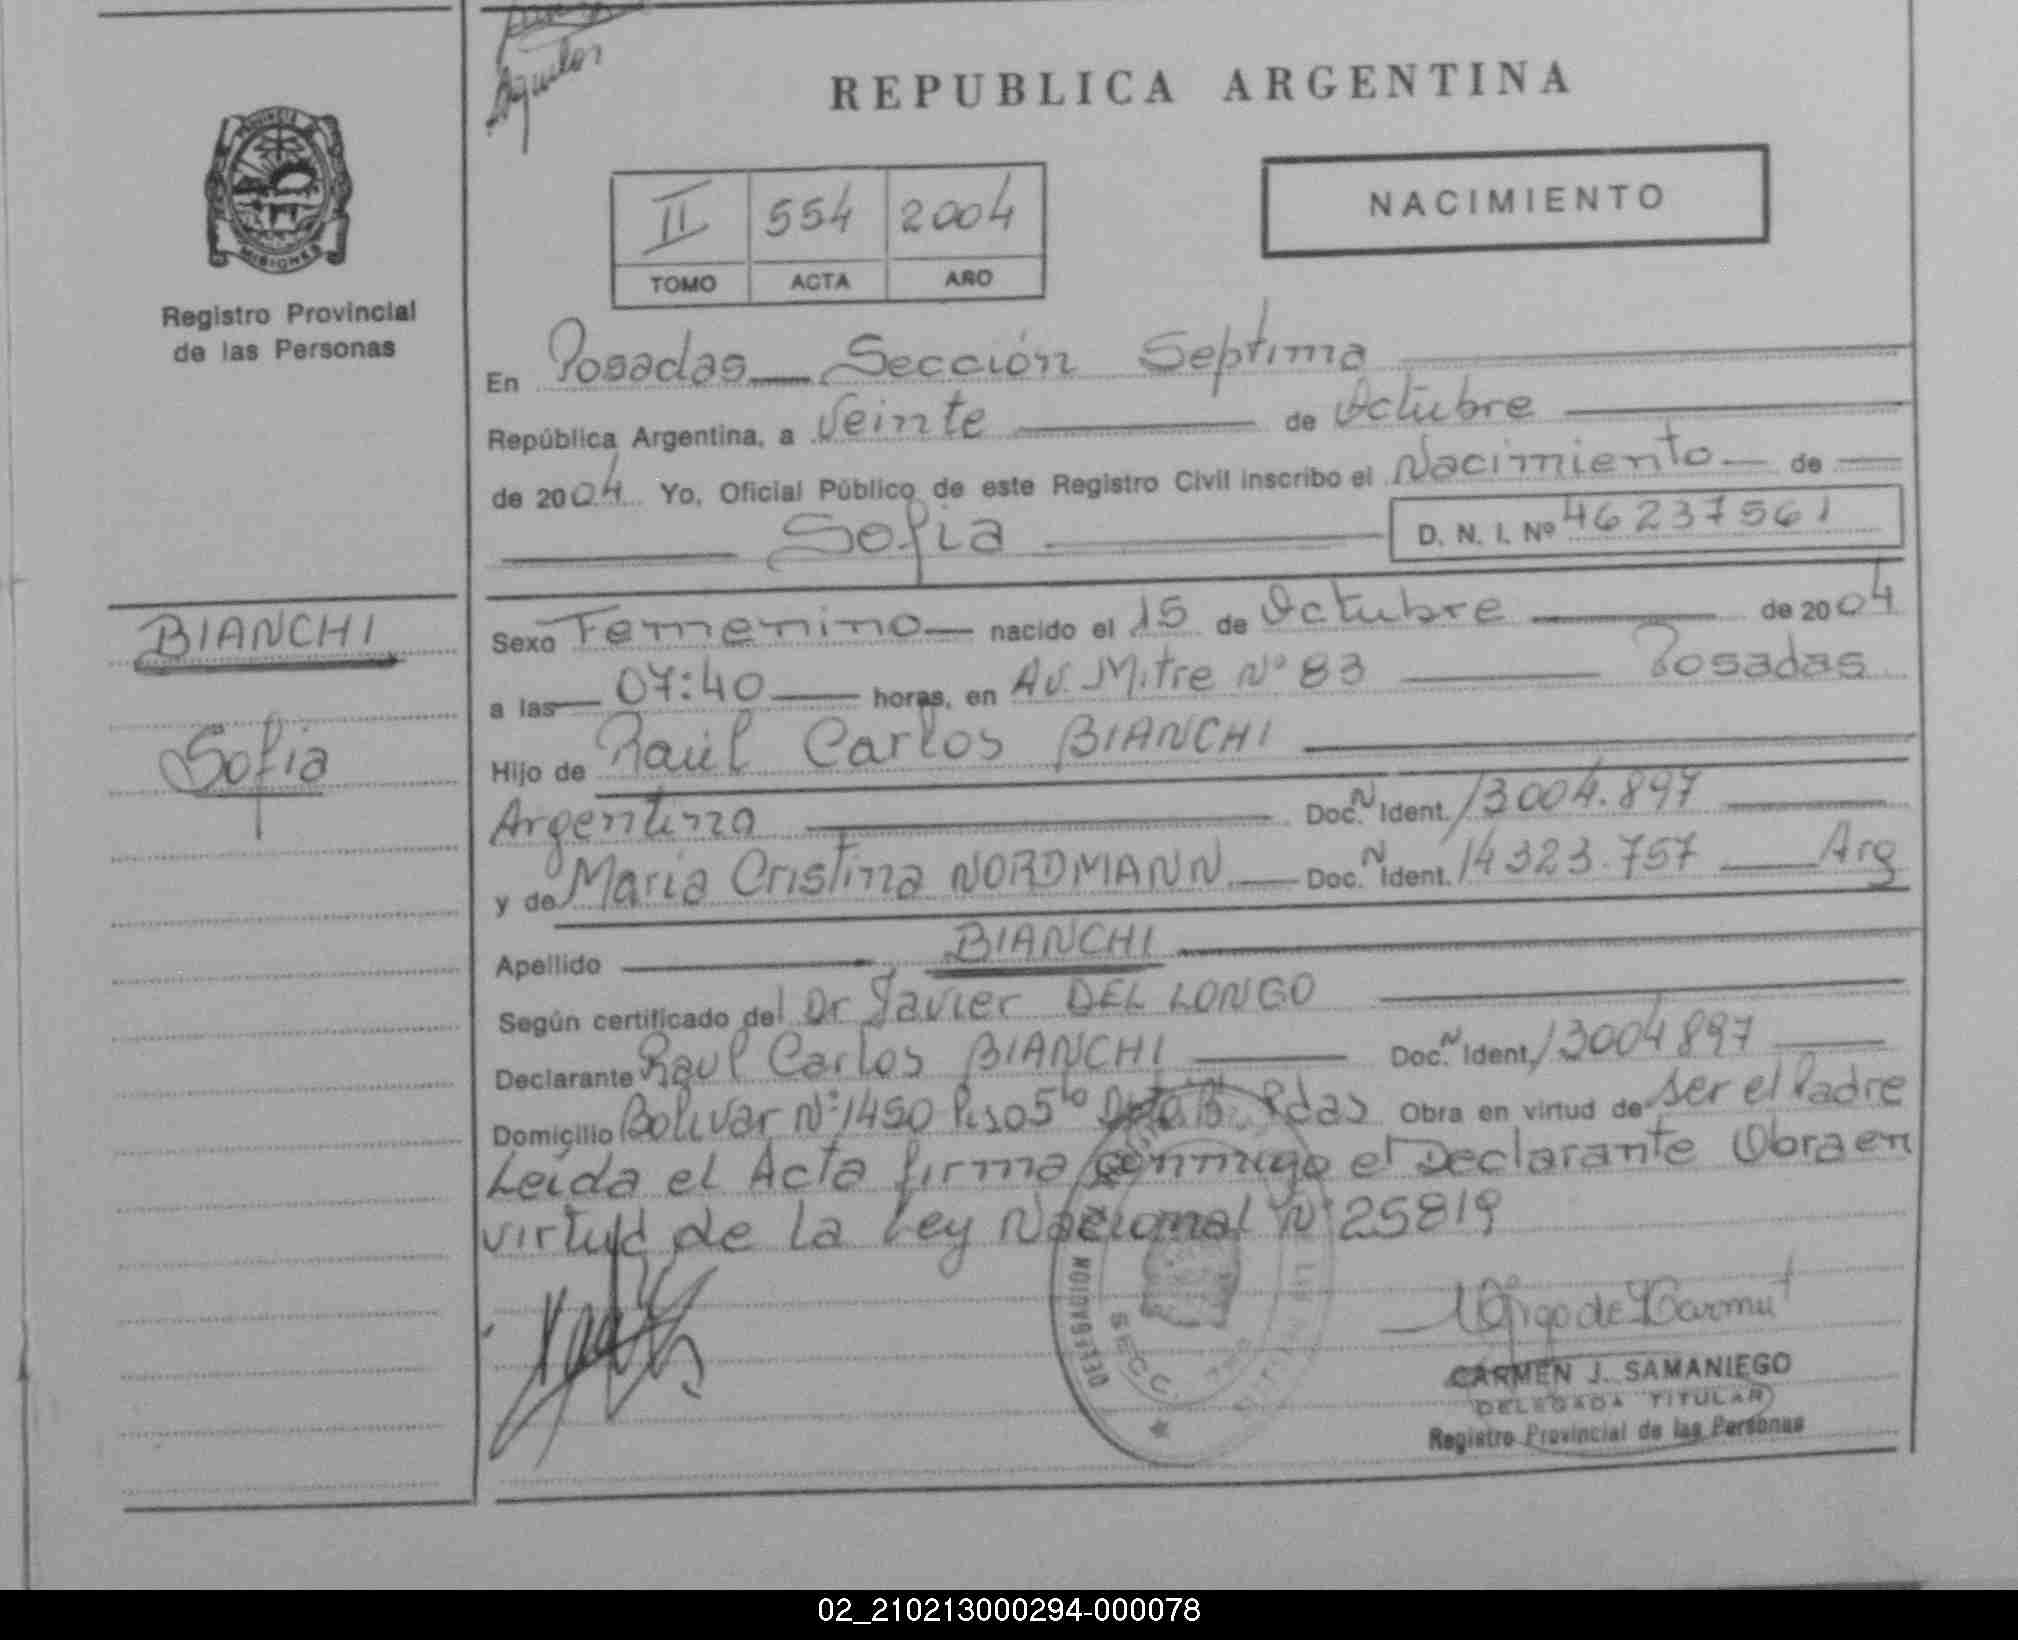 Aguilar
REPUBLICA ARGENTINA
NACIMIENTO
II 554 2004
TOMO ACTA AÑO
PROVINCIA DE
MISIONES
Registro Provincial
de las Personas
En Posadas Sección Septima
República Argentina, a Veinte de Octubre
de 2004 Yo, Oficial Público de este Registro Civil inscribo el Nacimiento de
Sofia D. N. I. Nº 46237561
BIANCHI
Sofia
Sexo Femenino nacido el 15 de Octubre de 2004
a las 07:40 horas, en Av. Mitre Nº 83 Posadas
Hijo de Raúl Carlos BIANCHI
Argentino Doc. N Ident. 13004.897
y de Maria Cristina NORDMANN Doc. N Ident. 14323.757 Arg
Apellido BIANCHI
Según certificado del Dr Javier DEL LONGO
Declarante Raul Carlos BIANCHI Doc. N Ident. 13004897
Domicilio Bolivar Nº 1450 Piso 5to Pdas Obra en virtud de ser el Padre
Leída el Acta firma conmigo el Declarante Obra en
virtud de la Ley Nacional Nº 25819
DELEGACION
SECC.
CARMEN J. SAMANIEGO
DELEGADA TITULAR
Registro Provincial de las Personas
02_210213000294-000078